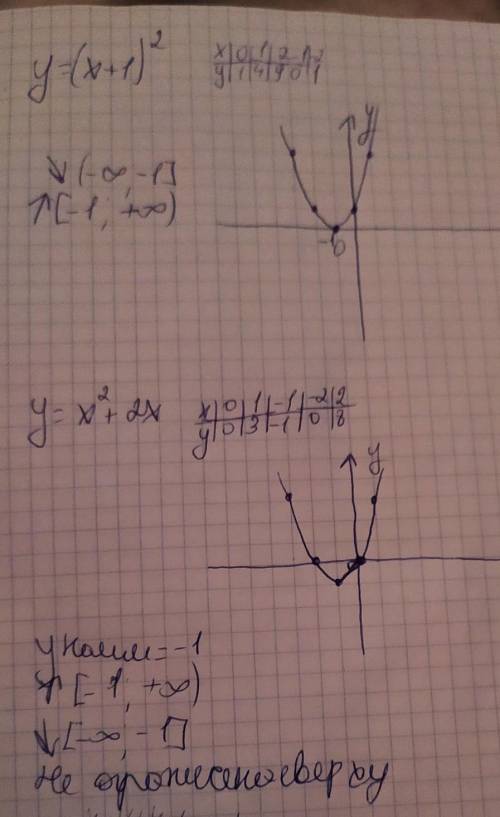 y=(x+1)²
x|0|1|2|-1|-2
y|1|4|9|0|1
y
↓ (-∞; -1]
↑ [-1; +∞)
-1 0
y = x² + 2x
x|0|1|-1|-2|2
y|0|3|-1|0|8
y
y наим = -1
↑ [-1; +∞)
↓ [-∞; -1]
не ограничено сверху